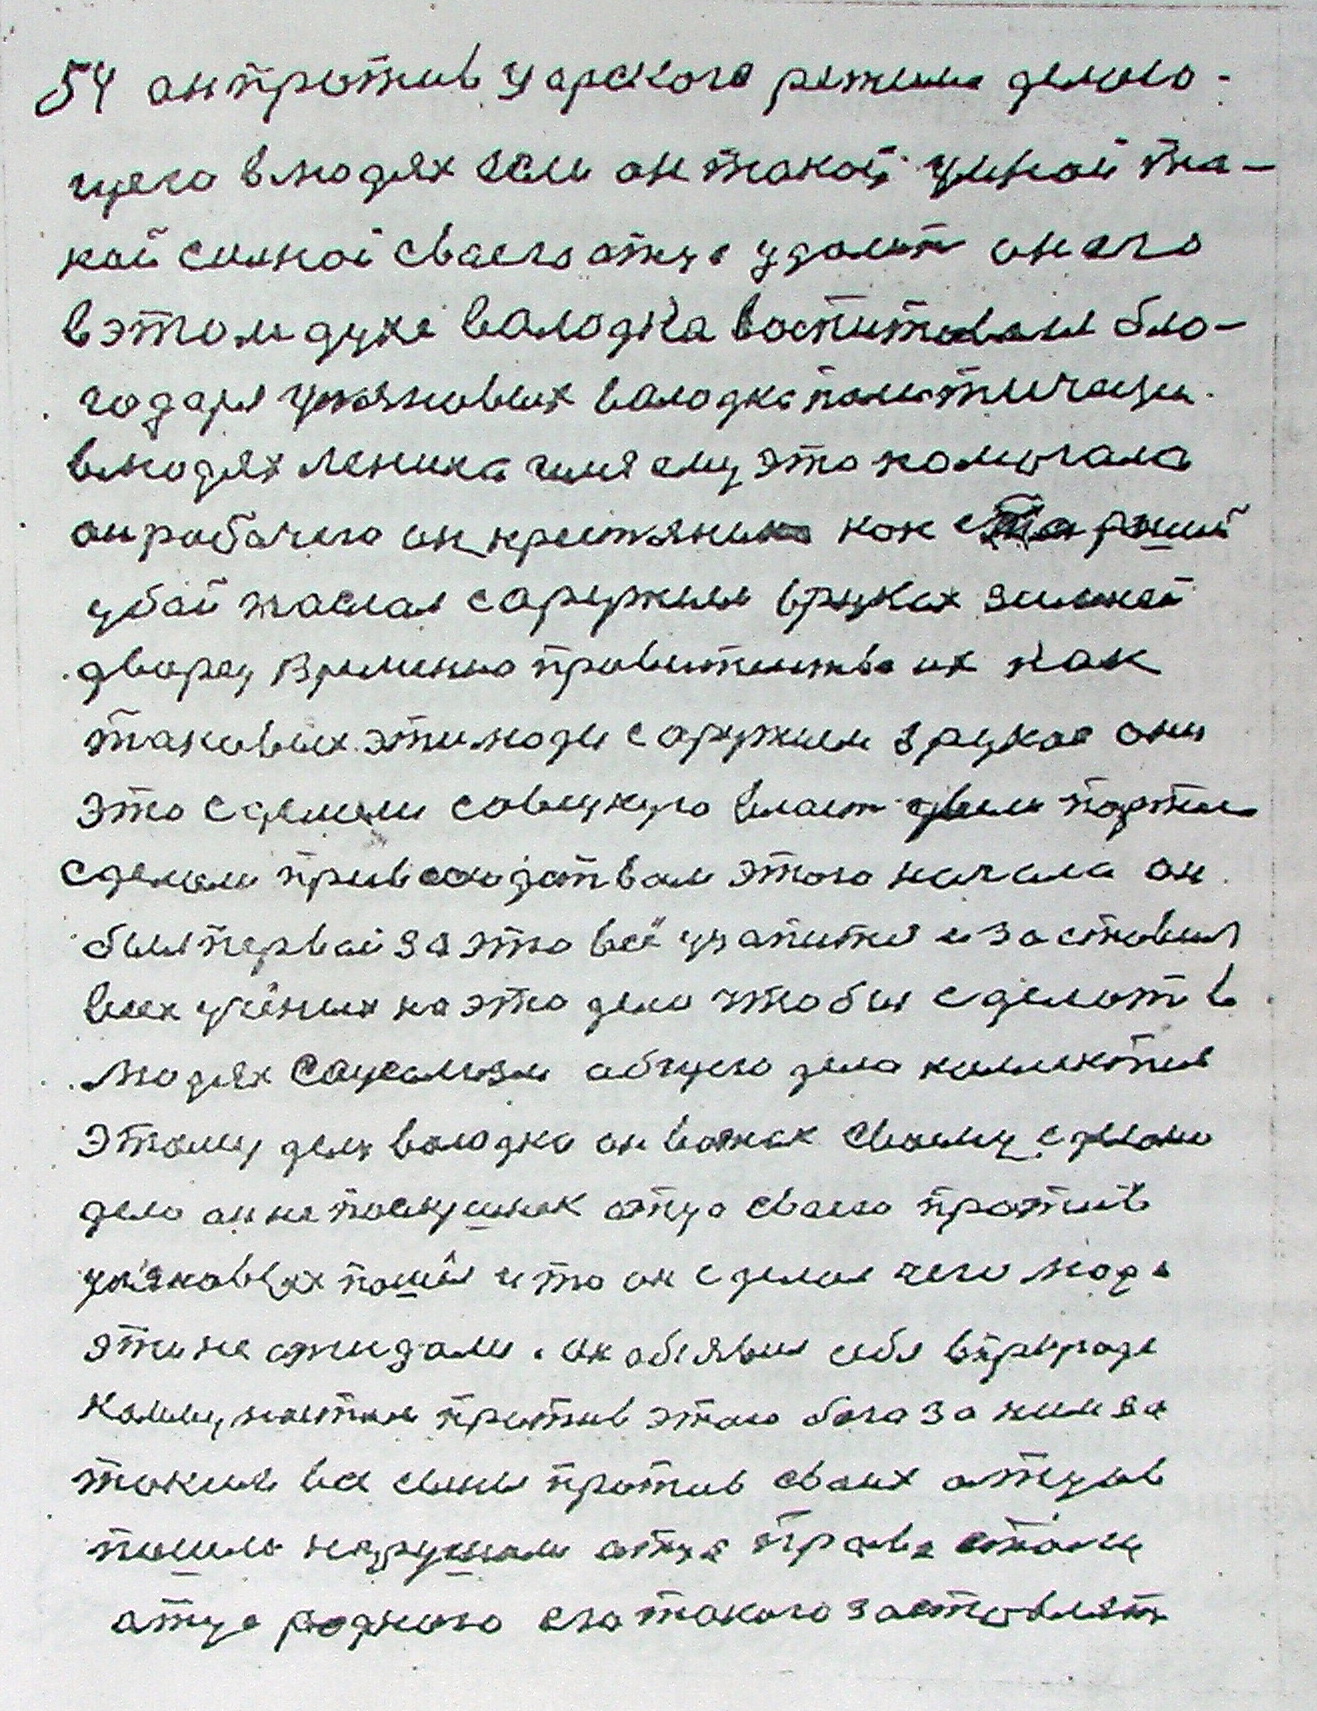 54 он против царского режима делаю-
щего в людях если он такой умной та-
кой силной сваего отца удалит он его
в этом духе валодка воспитовал бло-
годаря уже новых валодка политичещи
в людях ленина имя ему это помогала
он рабочего он крестянина как старший
убай жаслал с аружием в руках зимней
дварец времено правитиства их как
таковых эти люди с аружием в руках они
это сделали совецкую власт цвели партию
сделали присоидатвам этого начала он
был первай за это всё ухапится и заставил
всех учёных на это дело чтобы сделат в
людях сацеализм общего дела коллектив
этому делу валодка он вожак сваему сделал
дело он не послушник отца сваего против
пошёл что он сделал чего люди
эти не ожидали. он обявил себя в природе
коммунистам против этого бога за ним за
таким все сыны против сваих отцов
пошли нарушали отца права сталу
отца роднова его такого заставлят